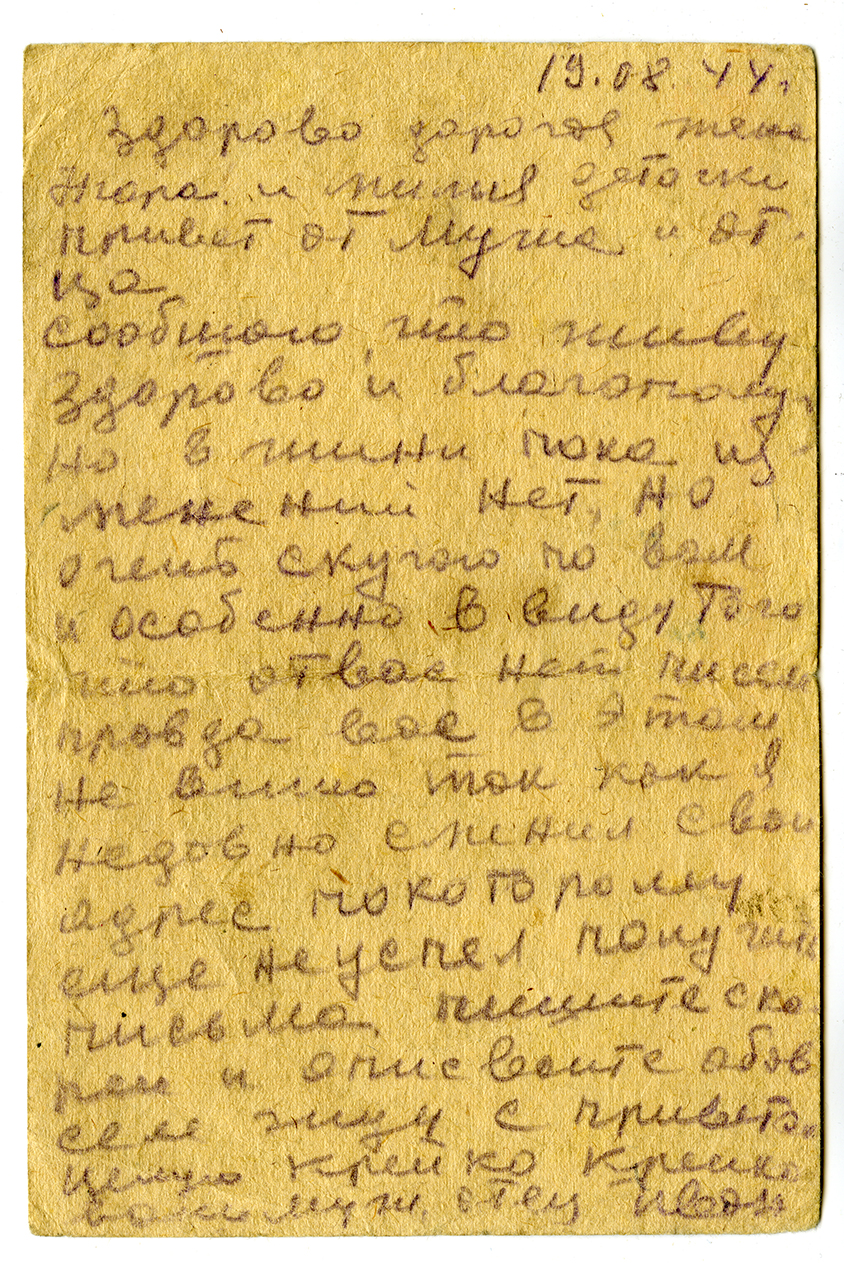 19.08.44.
Здорово дорогая жена
Жора. и милыя деточки
привет от Мужа и от-
ца
сообщаю, что живу
Здорово и благополу-
но в жини пока из-
менений нет, но
очень скучаю по вам
и особенно в виду того
что от вас нет писем
правда вас в этом
не виню так как я
недавно сменил свои
адрес покоторому
еще неуспел получить
письма, пишите ско-
реи и описваите обов
сем жиду с привето.
целую крепко крепко
ваш муж. отец Иван